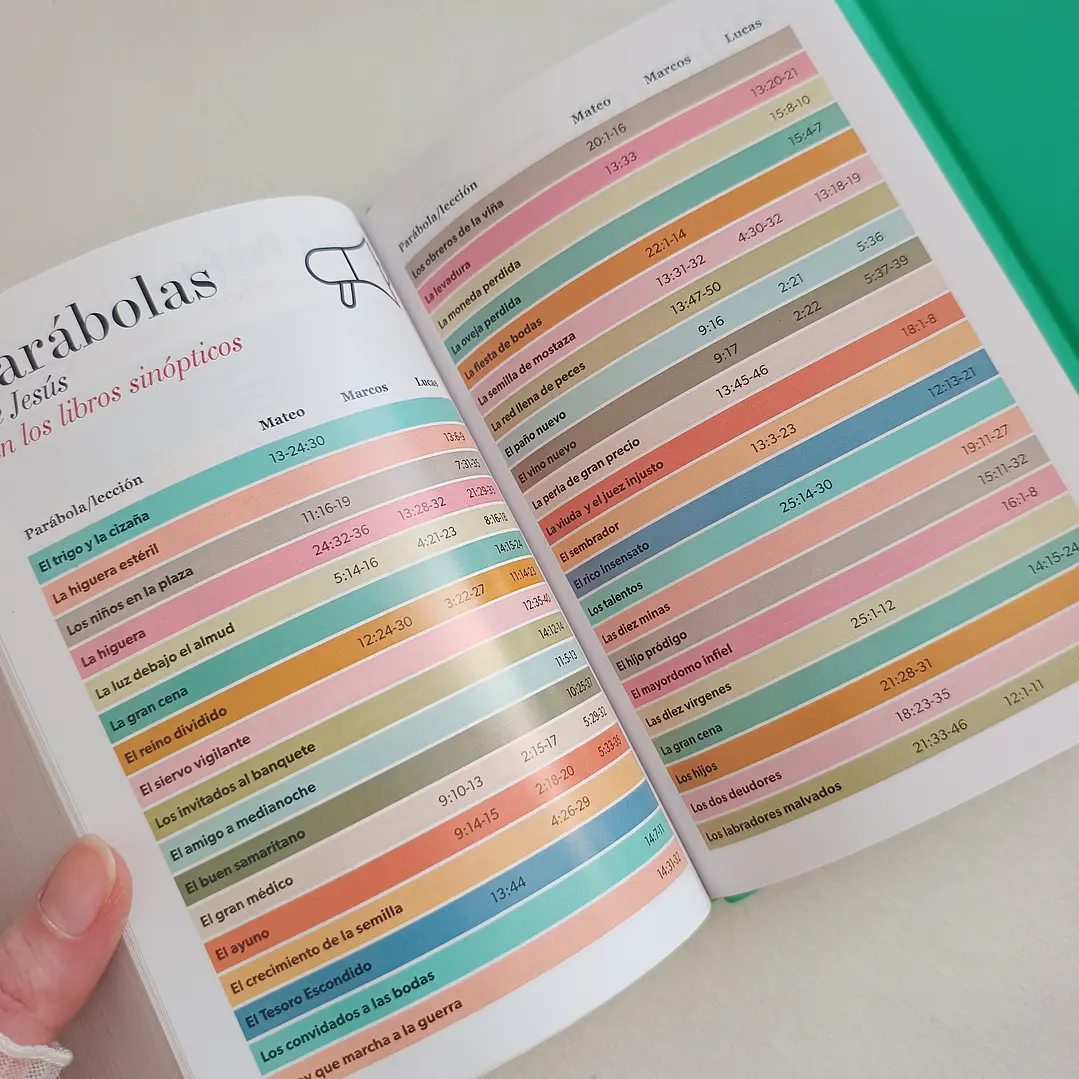 arábolas
e Jesús
n los libros sinópticos
Parábola/lección Mateo Marcos Lucas
El trigo y la cizaña 13-24:30
La higuera estéril 13:6-9
Los niños en la plaza 11:16-19 7:31-35
La higuera 24:32-36 13:28-32 21:29-33
La luz debajo el almud 5:14-16 4:21-23 8:16-18
La gran cena 14:15-24
El reino dividido 12:24-30 3:22-27 11:14-23
El siervo vigilante 12:35-40
Los invitados al banquete 14:12-14
El amigo a medianoche 11:5-13
El buen samaritano 10:25-37
El gran médico 9:10-13 2:15-17 5:29-32
El ayuno 9:14-15 2:18-20 5:33-35
El crecimiento de la semilla 4:26-29
El Tesoro Escondido 13:44
Los convidados a las bodas 14:7-11
y que marcha a la guerra 14:31-32
Parábola/lección Mateo Marcos Lucas
Los obreros de la viña 20:1-16
La levadura 13:33 13:20-21
La moneda perdida 15:8-10
La oveja perdida 15:4-7
La fiesta de bodas 22:1-14
La semilla de mostaza 13:31-32 4:30-32 13:18-19
La red llena de peces 13:47-50
El paño nuevo 9:16 2:21 5:36
El vino nuevo 9:17 2:22 5:37-39
La perla de gran precio 13:45-46
La viuda y el juez injusto 18:1-8
El sembrador 13:3-23
El rico insensato 12:13-21
Los talentos 25:14-30
Las diez minas 19:11-27
El hijo pródigo 15:11-32
El mayordomo infiel 16:1-8
Las diez vírgenes 25:1-12
La gran cena 14:15-24
Los hijos 21:28-31
Los dos deudores 18:23-35
Los labradores malvados 21:33-46 12:1-11